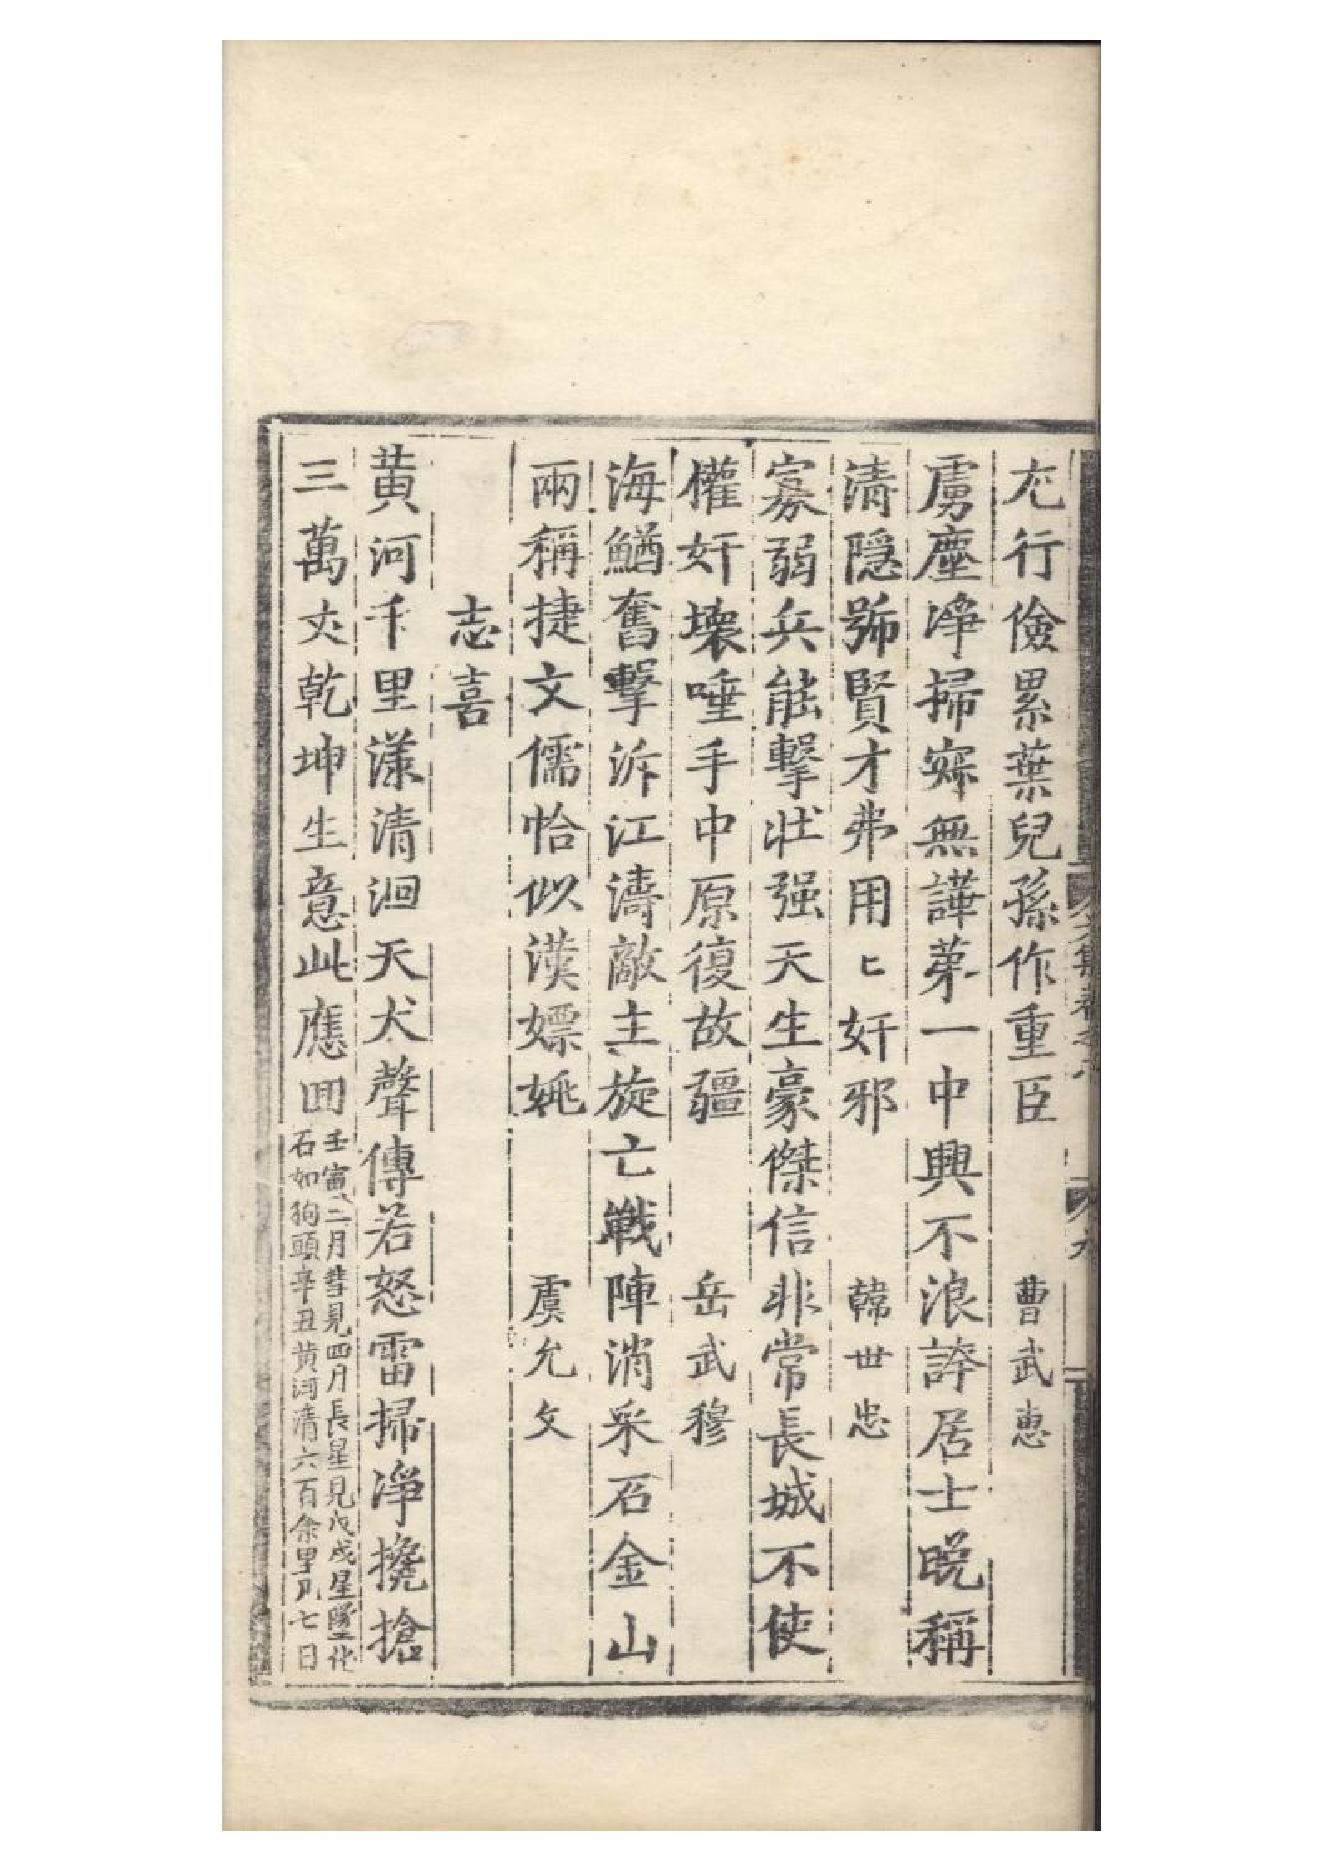 尢行儉累葉兒孫作重臣　曹武惠
虜塵淨掃寂無譁苐一中興不浪誇居士晚稱
清隠號賢才弗用匕奸邪　韓世忠
寡弱兵能擊壯强天生豪傑信非常長城不使
權奸壊唾手中原復故疆　岳武穆
海鰌奮擊泝江濤敵主旋亡戰陣消采石金山
兩稱捷文儒恰似漢嫖姚　虞允文
志喜
黄河千里漾清洄天犬聲傳若怒雷掃淨攙搶
三萬丈乾坤生意此應囬
壬寅二月彗見四月長星見戊戌星隊化
石如狗頭辛丑黄河清六百余里凡七日
文集卷之八
九